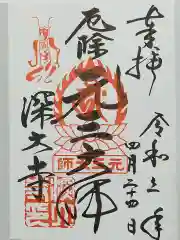 奉拝
令和三年
四月二十四日
厄除
元三大師
深大寺
元三大師